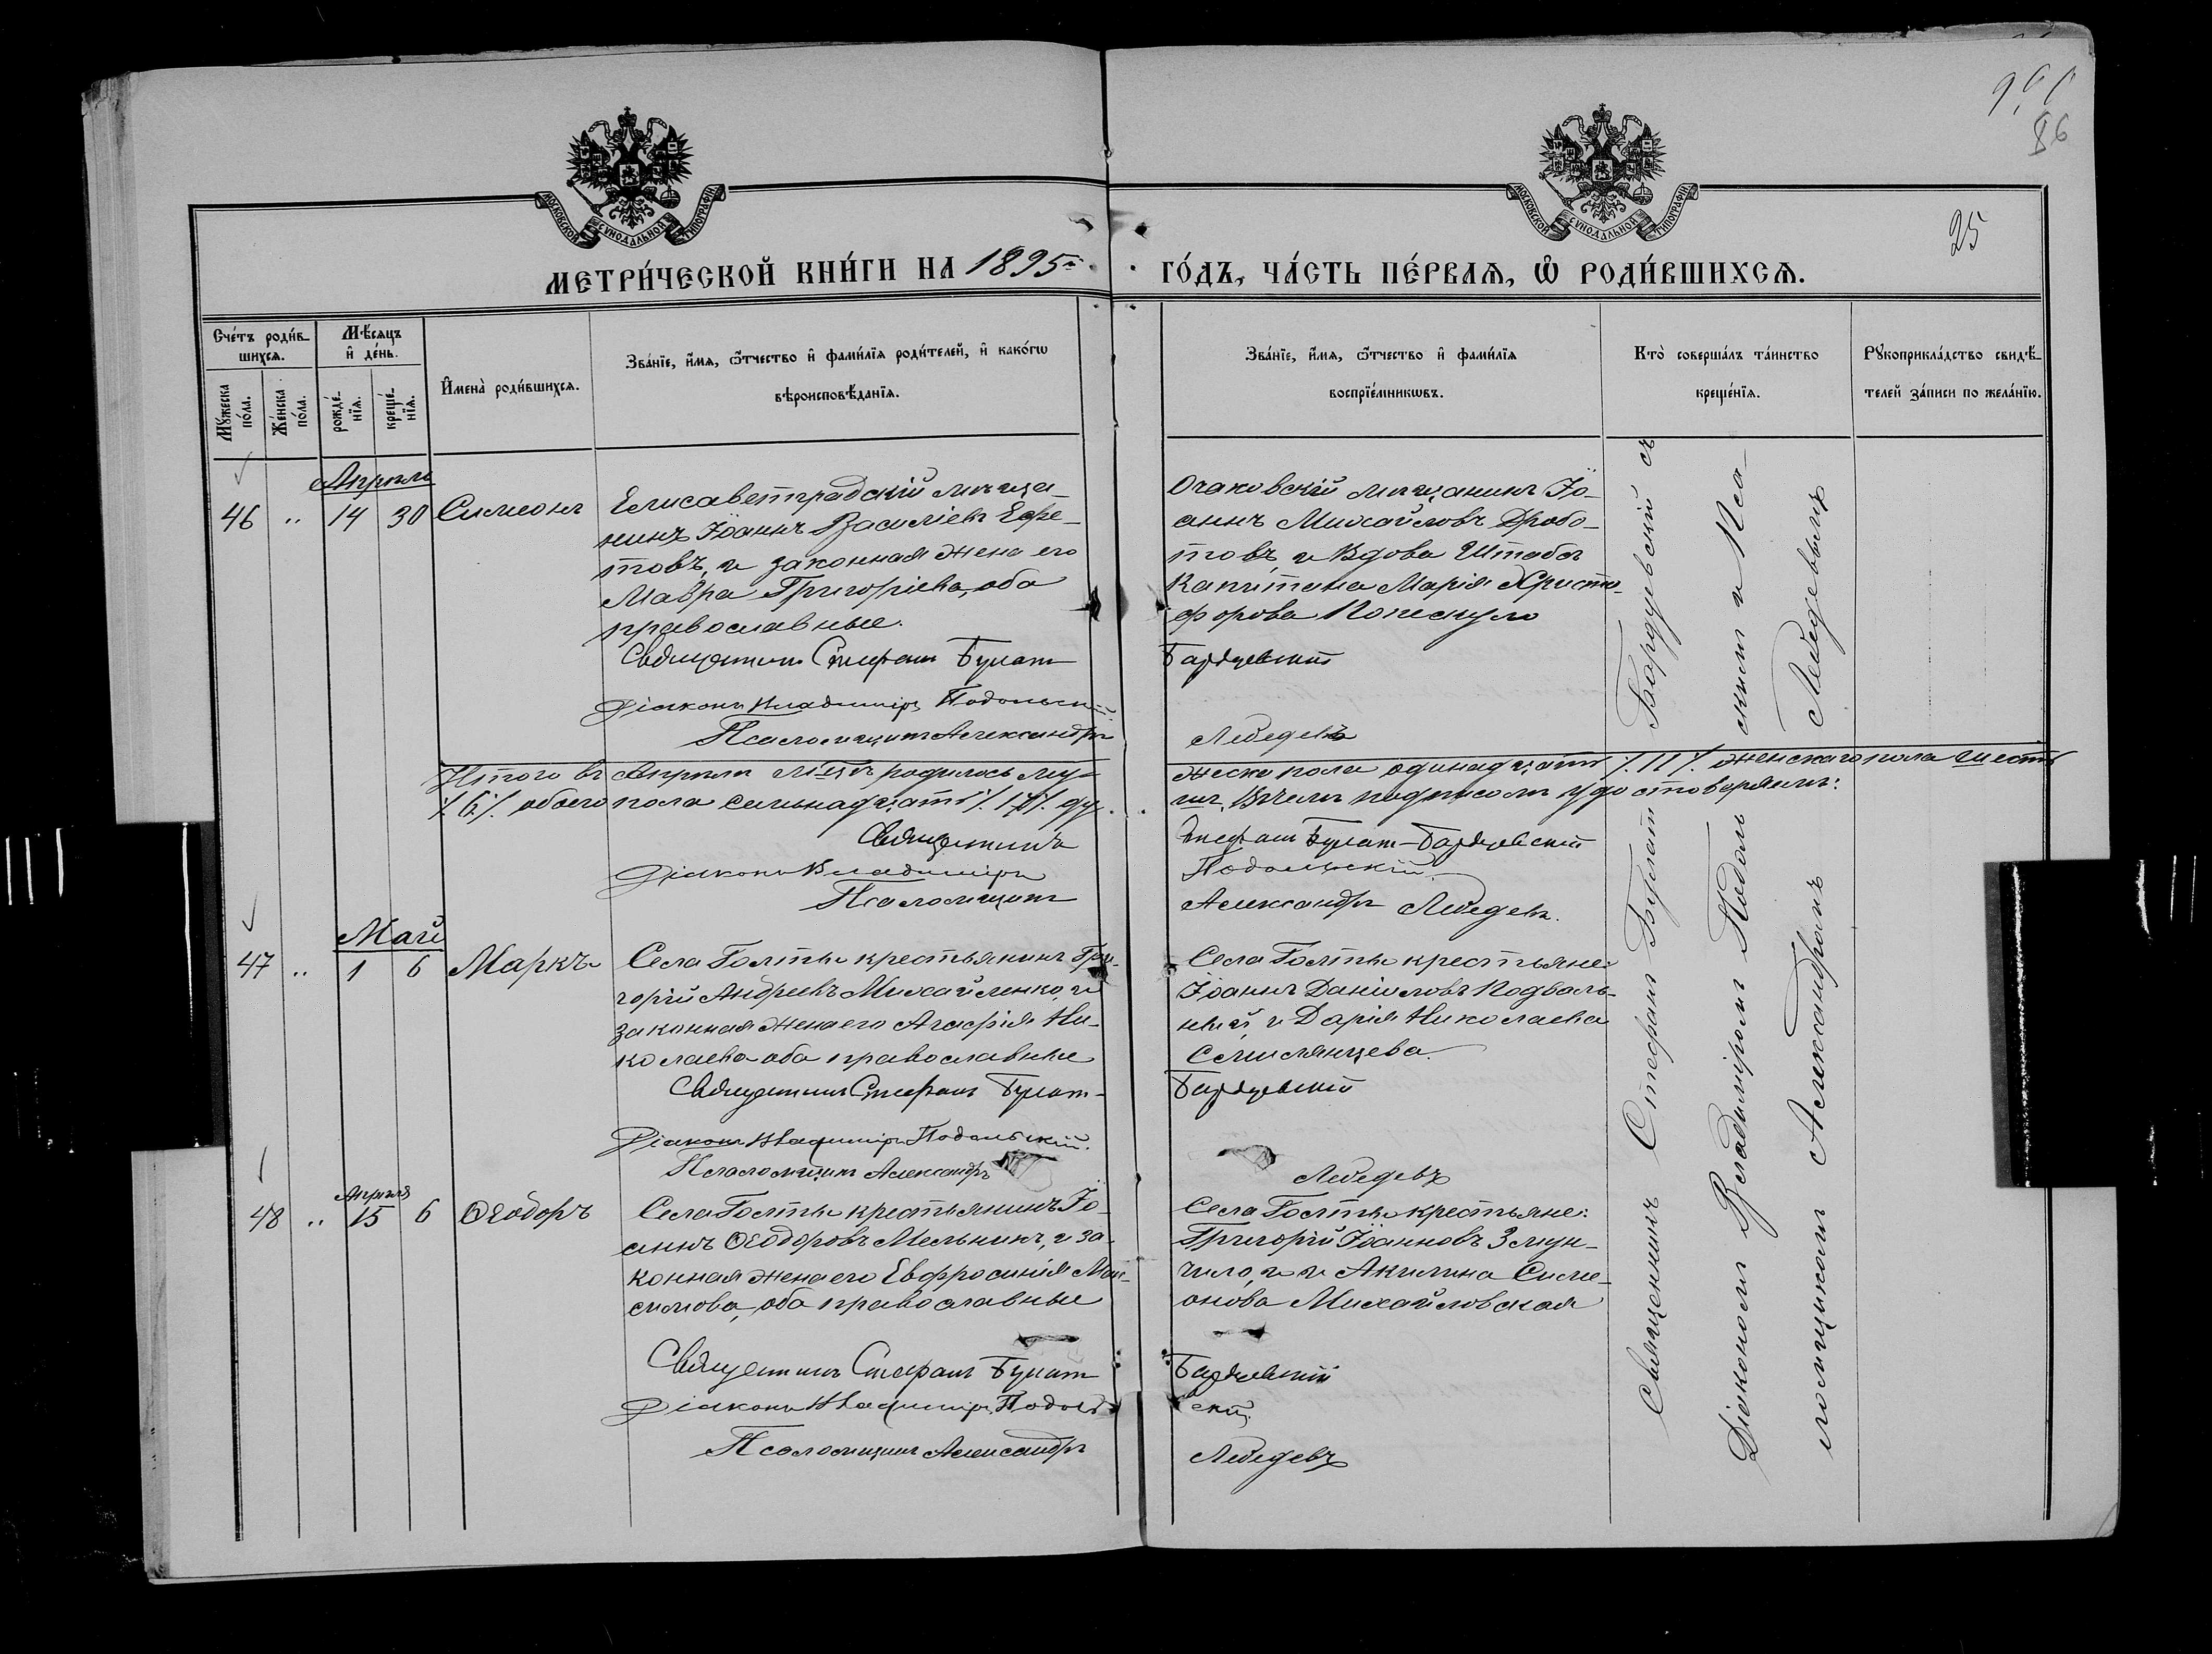 86
25
МОСКОВСКОЙ СѴНОДАЛЬНОЙ ТИПОГРАФІИ
МОСКОВСКОЙ СѴНОДАЛЬНОЙ ТИПОГРАФІИ
МЕТРИ́ЧЕСКОЙ КНИ́ГИ НА 1895й
ГО́ДЪ, ЧА́СТЬ ПЕ́РВАѦ, Ѡ҆ РОДИ́ВШИХСѦ.
Сче́тъ роди́в-
шихсѧ.
Мꙋ́жеска по́ла.
Же́нска по́ла.
Мѣ́сяцъ
и҆ де́нь.
рожде́-
нїѧ.
креще́-
нїѧ.
И҆мена̀ роди́вшихсѧ.
Зва́нїе, и҆́мѧ, ѻ҆́тчество и҆ фами́лїѧ роди́телей, и҆ како́гѡ
вѣроисповѣ́данїѧ.
Зва́нїе, и҆́мѧ, ѻ҆́тчество и҆ фами́лїѧ
воспрїе́мникѡвъ.
Кто̀ соверша́лъ та́инство
креще́нїѧ.
Рꙋкоприкла́дство свидѣ́-
телей за́писи по жела́нїю.
Апрѣль
46 " 14 30 Симеонъ
Елисаветградскій мѣща-
нинъ Іоаннъ Василіевъ Ефре-
товъ, и законная жена его
Мавра Григоріева, оба
православные.
Священникъ Стефанъ Булат
Діаконъ Владиміръ Подольскій
Псаломщикъ Александръ
Очаковскій мѣщанинъ Іо-
аннъ Михайловъ Дробо-
товъ, и Вдова Штабсъ
Капитана Марія Христо-
форова Попескуло
Бардзевскій
Лебедевъ
Итого въ Апрѣлѣ мцѣ родилось му-
жеска пола одинадцать /.11/. женскаго пола шесть
/.6/. обоего пола семьнадцать /.17/. ду
шъ, въ чемъ подписомъ удостоверяемъ:
Священникъ
Стефанъ Булат-Бардзевскій
Діаконъ Владиміръ
Подольскій.
Псаломщикъ
Александръ Лебедевъ.
Май
47 " 1 6 Маркъ
Села Голты крестьянинъ Гри-
горій Андреевъ Михайленко, и
законная жена его Агафія Ни-
колаева оба православные
Священникъ Стефанъ Булат-
Діаконъ Владиміръ Подольскій.
Псаломщикъ Александръ
Села Голты крестьяне:
Іоаннъ Даніиловъ Подваль-
ный и Дарія Николаева
Семислянцева.
Бардзевскій
Лебедевъ
Апрѣля
48 " 15 6 Ѳеодоръ
Села Голты крестьянинъ Іо-
аннъ Ѳеодоровъ Мельникъ, и за-
конная жена его Евфросинія Мак-
симова, оба православные
Священникъ Стефанъ Булат
Діаконъ Владиміръ Подоль
Псаломщикъ Александръ
Села Голты крестьяне:
Григорій Іоанновъ Змун-
чило, и и Акилина Симе-
онова Михайловская
Бардзевскій
скій.
Лебедевъ
Священникъ Стефанъ Булат Бардзевскій съ
Діакономъ Владиміромъ Подоль скимъ и Пса-
ломщикомъ Александромъ Лебедевымъ